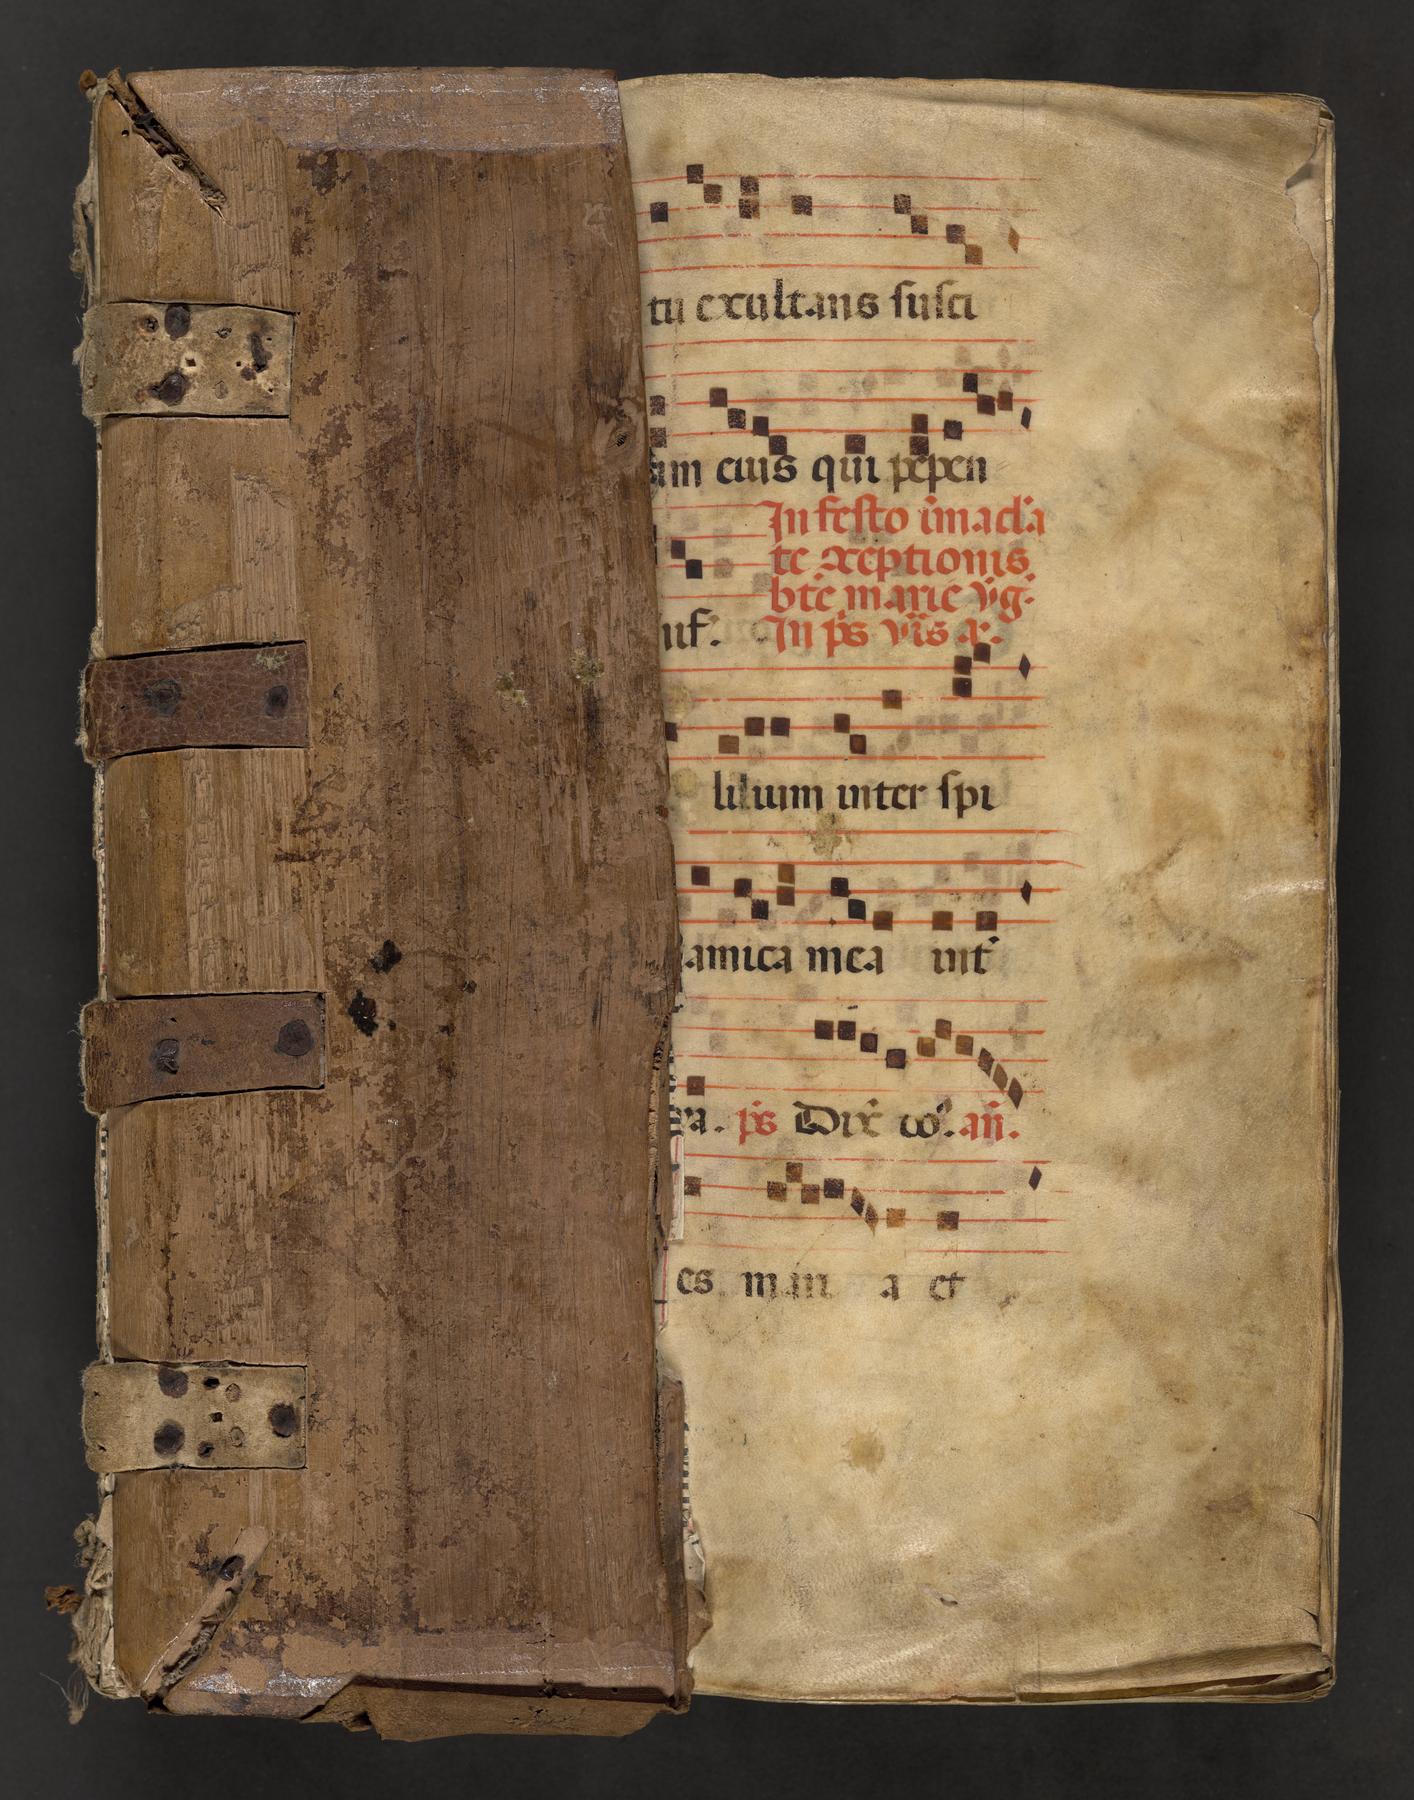 tu exultans susci
eius qui pepen
In festo im̄acl̄a
te ꝯceptionis
bt̄e marie v̄ḡ.
In ps
lilium inter spi
amica mea int̾
ra. ps̄ Dix̄ an̄.
es man a et